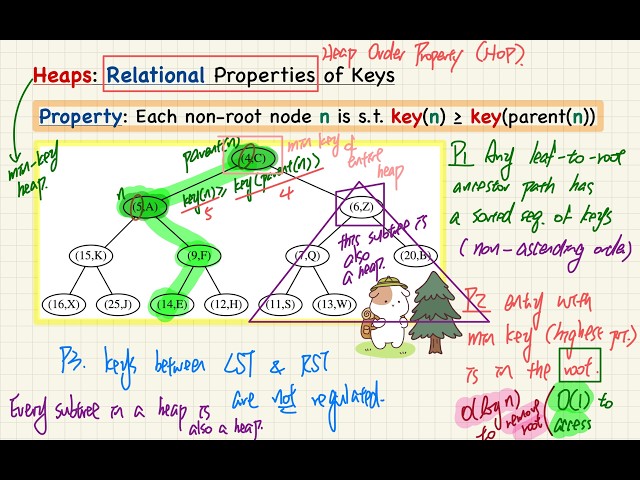 Heap Order Property (HOP).
Heaps: Relational Properties of Keys
Property: Each non-root node n is s.t. key(n) ≥ key(parent(n))
min-key
heap.
parent(n)
(4,C)
min key of
entire
heap
n
(5,A)
key(n) ≥ key(parent(n))
5
4
(6,Z)
this subtree is
also
a heap.
(15,K)
(9,F)
(7,Q)
(20,B)
(16,X)
(25,J)
(14,E)
(12,H)
(11,S)
(13,W)
P1 Any leaf-to-root
ancestor path has
a sorted seq. of keys
(non-ascending order)
P2 entry with
min key (highest pri.)
is in the root.
O(log n)
to remove
root
(O(1) to
access
P3. keys between LST & RST
are not regulated.
Every subtree in a heap is
also a heap.